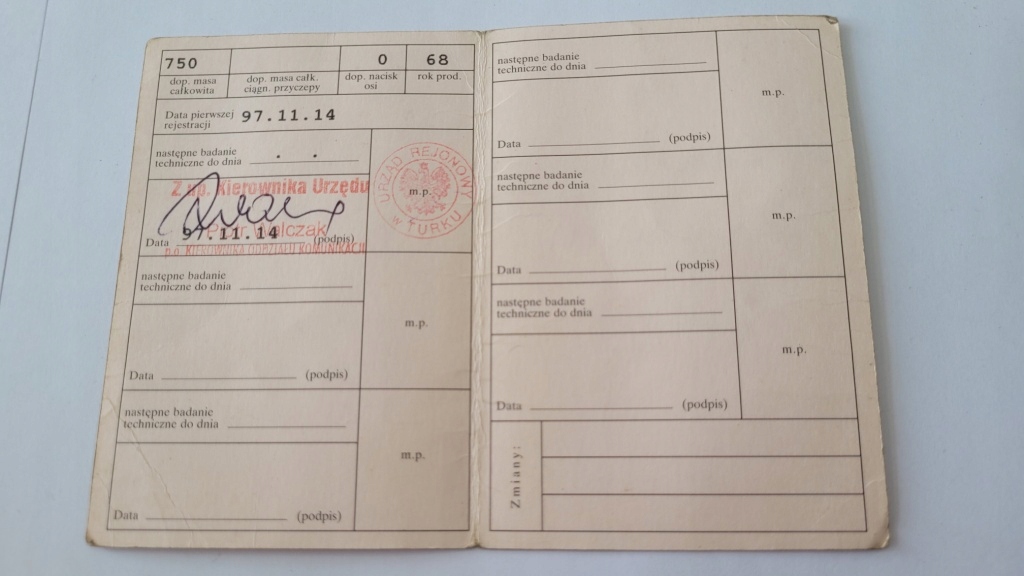 750 0 68
dop. masa całkowita
dop. masa całk. ciągn. przyczepy
dop. nacisk osi
rok prod.
Data pierwszej rejestracji 97.11.14
następne badanie
techniczne do dnia . .
Z up. Kierownika Urzędu
Piotr Walczak
Data 97.11.14 (podpis)
p.o. KIEROWNIKA ODDZIAŁU KOMUNIKACJI
m.p.
URZĄD REJONOWY
w TURKU
następne badanie
techniczne do dnia
m.p.
Data (podpis)
następne badanie
techniczne do dnia
m.p.
Data (podpis)
następne badanie
techniczne do dnia
m.p.
Data (podpis)
następne badanie
techniczne do dnia
m.p.
Data (podpis)
następne badanie
techniczne do dnia
m.p.
Data (podpis)
Zmiany: